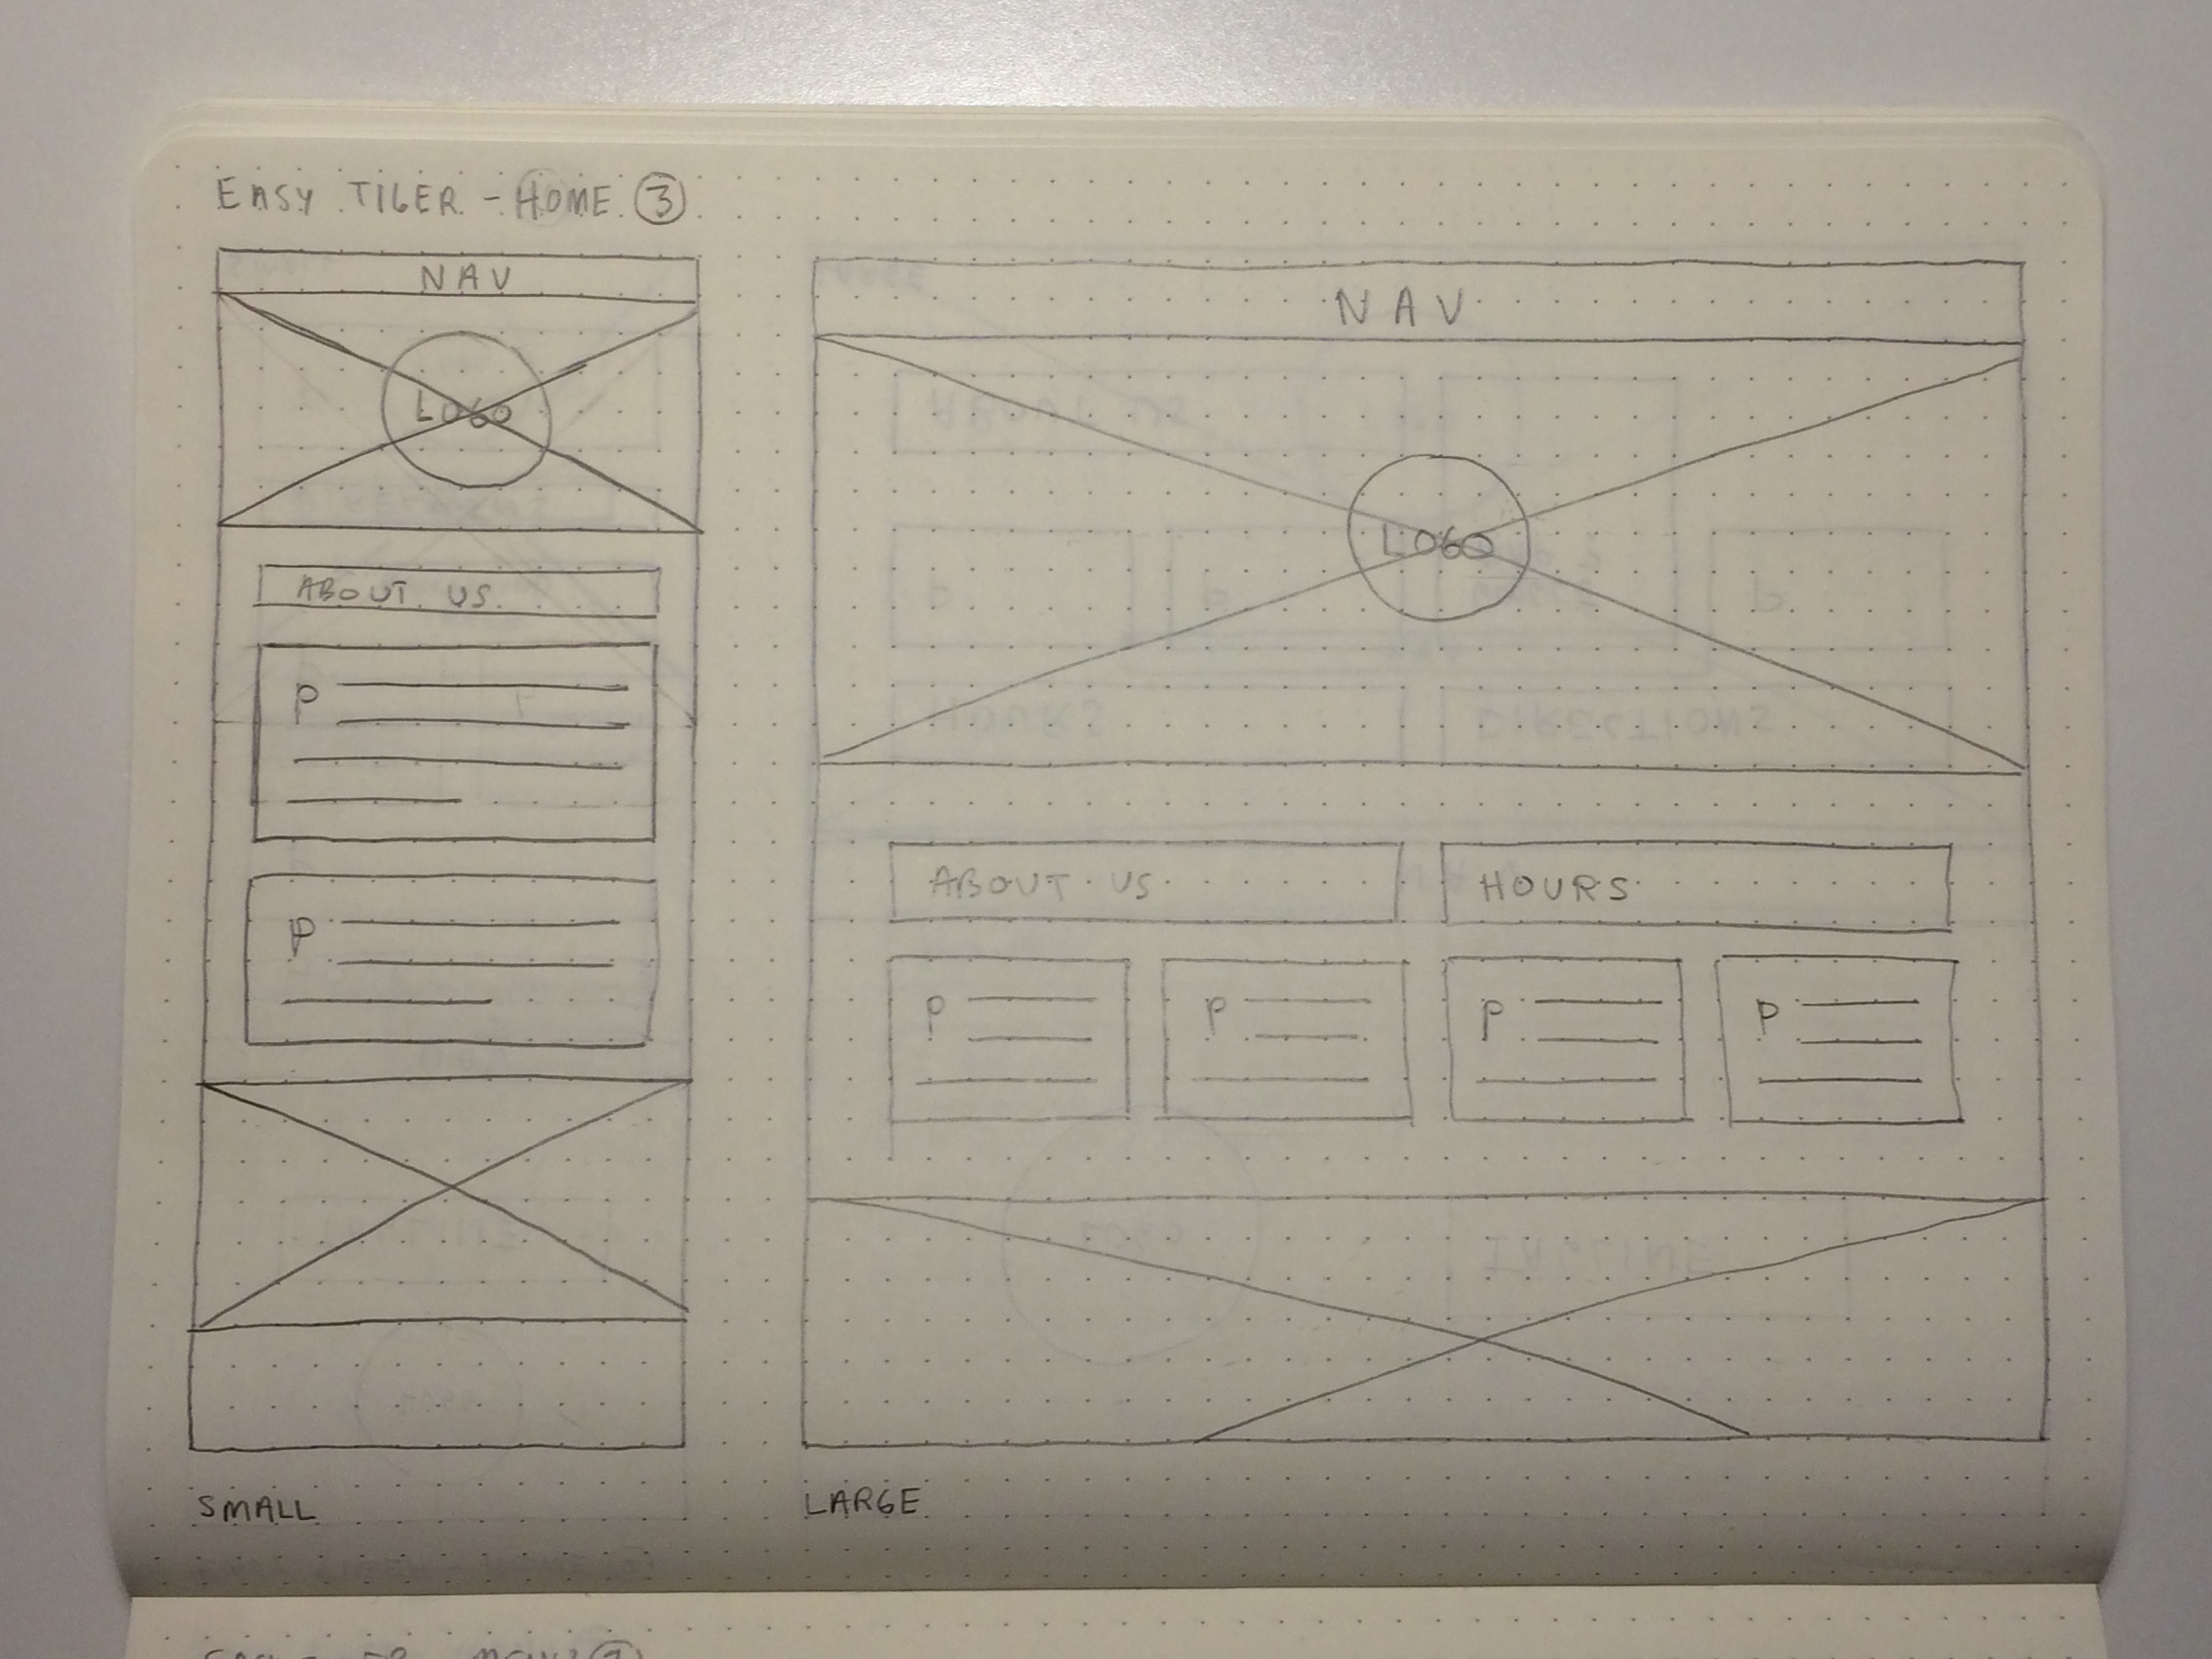 EASY TIGER - HOME 3
NAV
LOGO
ABOUT US
P
P
SMALL
NAV
LOGO
ABOUT US
HOURS
P
P
P
P
LARGE